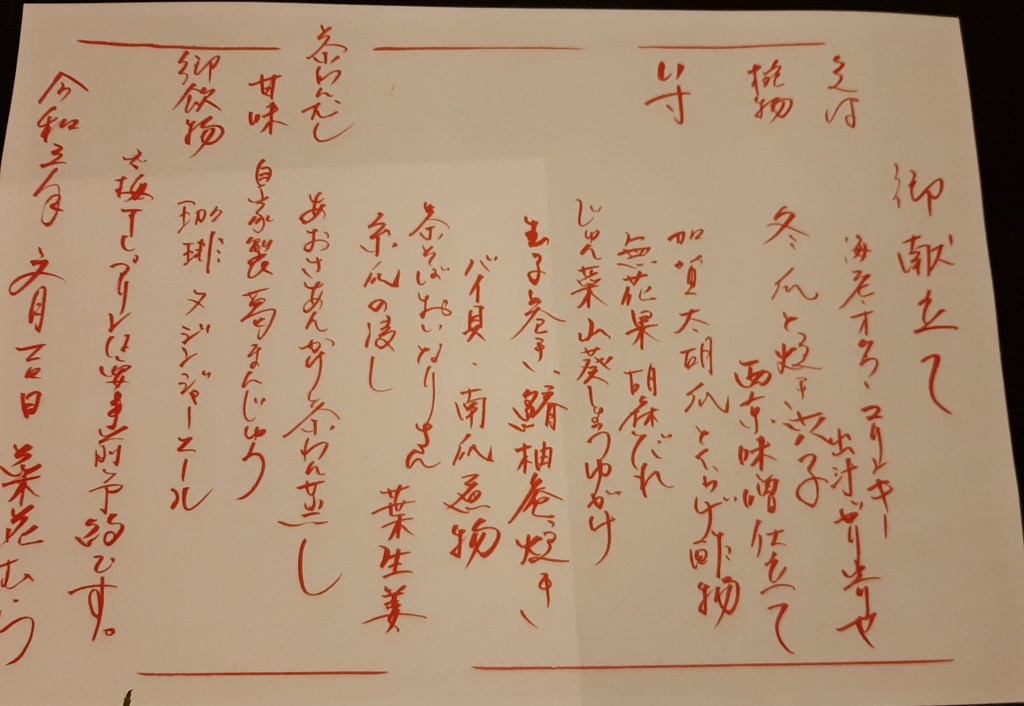 御献立て
先付
海老オクラ、コリンキー
出汁ゼリー寄せ
椀物
冬瓜と焼き穴子
西京味噌仕立て
八寸
加賀太胡瓜とくらげ酢物
無花果 胡麻だれ
じゅん菜山葵しょうゆがけ
玉子巻き、鰆柚庵焼き、
バイ貝、南瓜煮物
茶そばおいなりさん
糸瓜の浸し
葉生姜
茶わんむし
あおさあんかけ茶わん蒸し
甘味
自家製葛まんじゅう
御飲物
珈琲 又 ジンジャーエール
は要事前予約です。
令和三年 文月 日 菜花むら